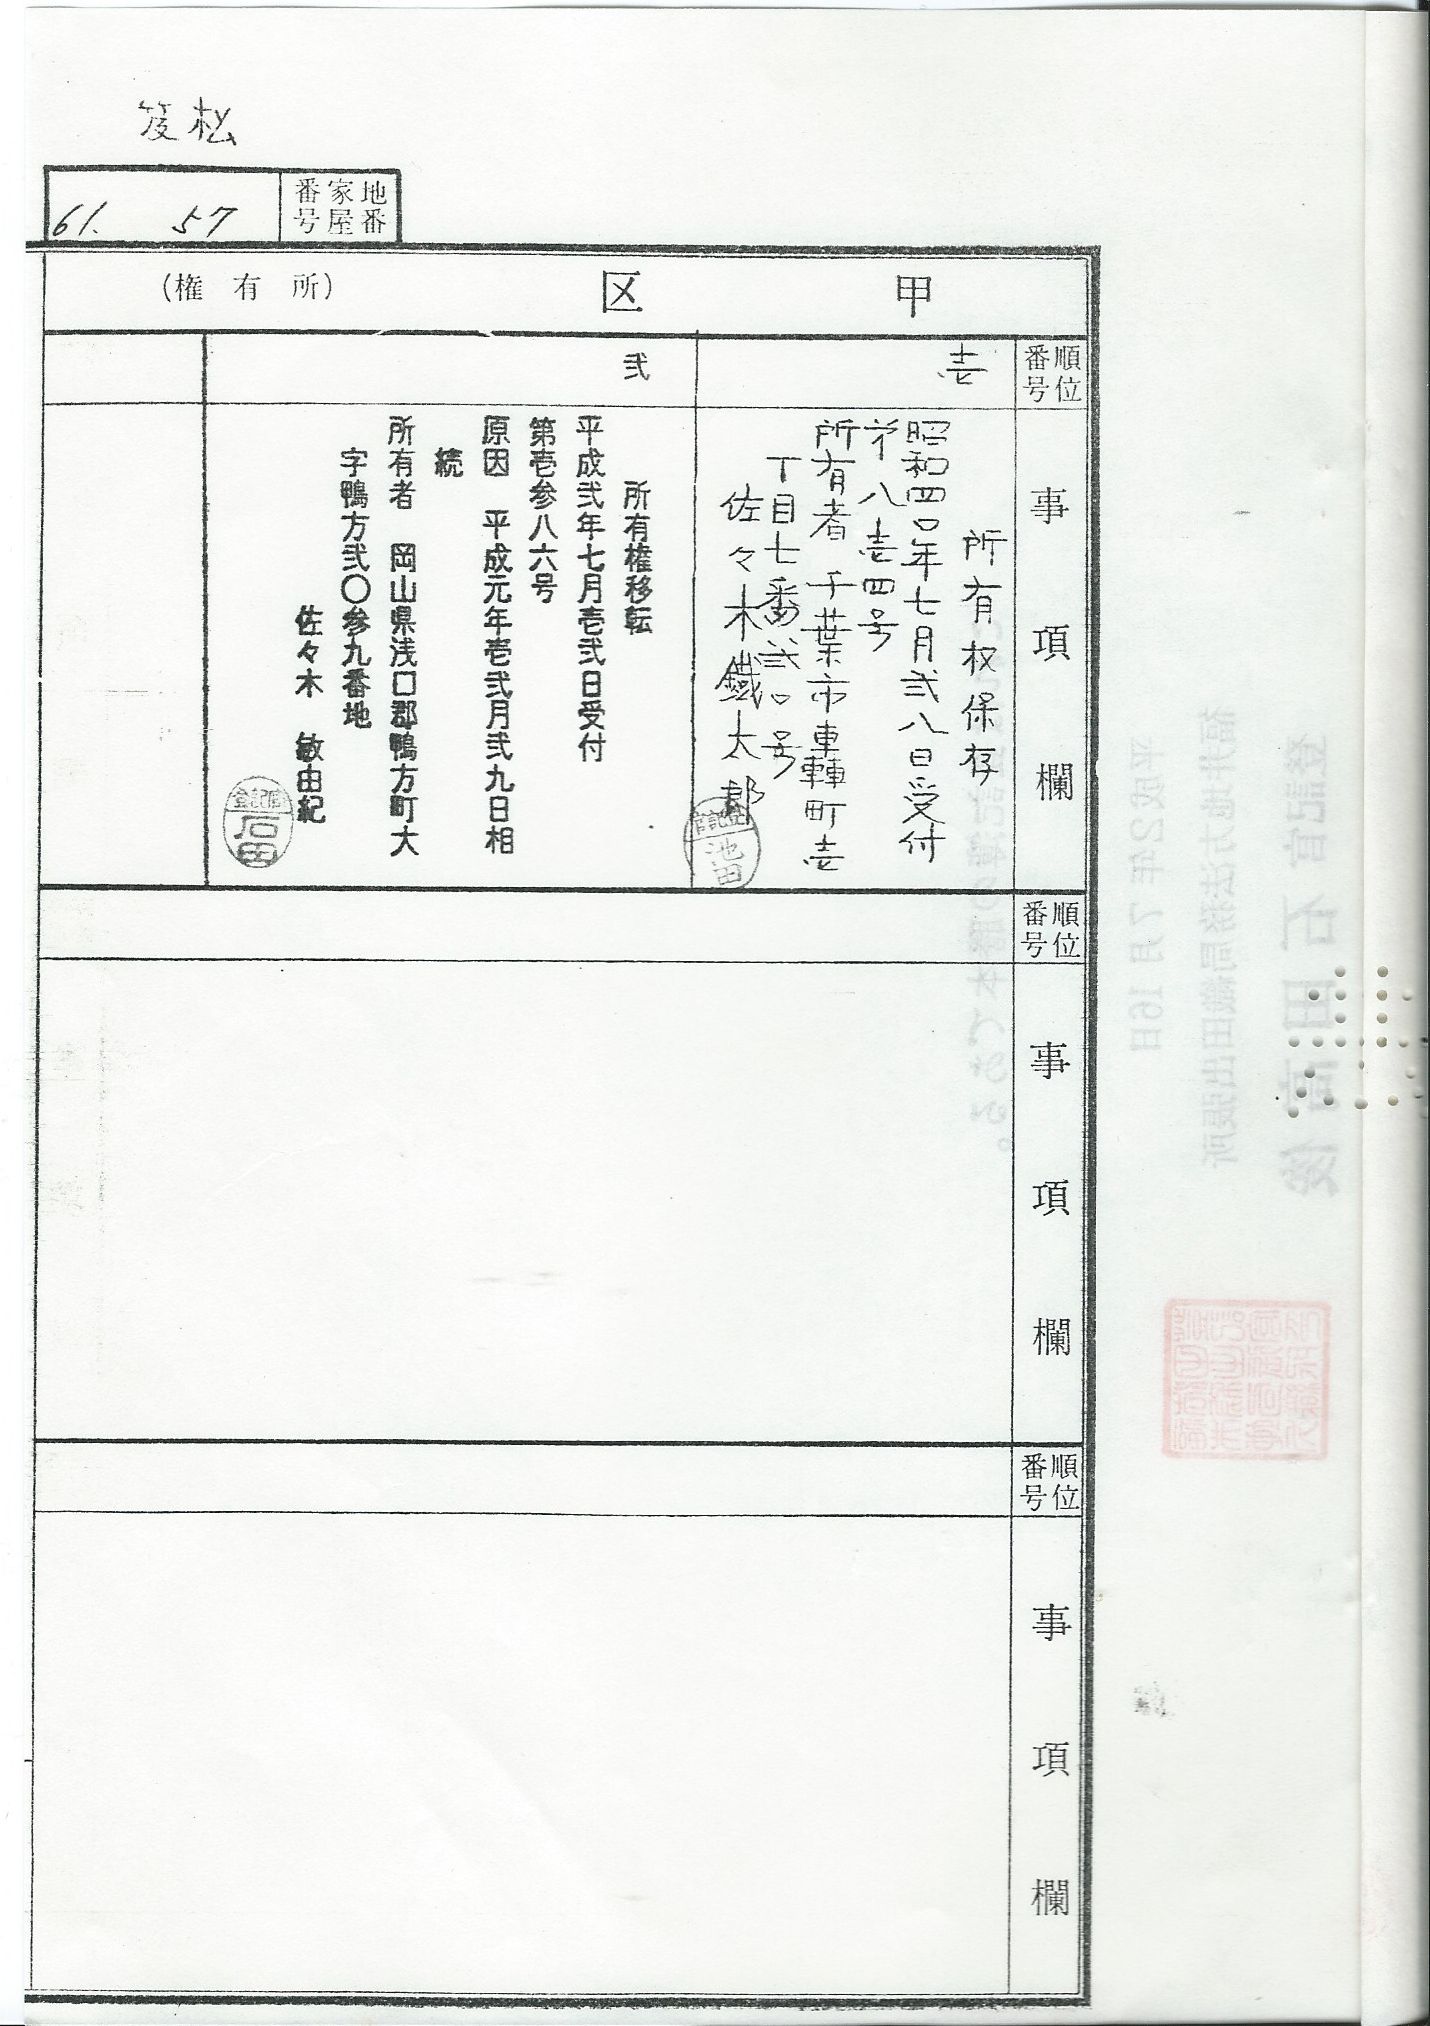 笈松
地番
家屋番号
61. 57
甲 区 (所有権)
順位番号
事項欄
壱
所有权保存
昭和四〇年七月弐八日受付
第八壱四号
所有者 千葉市轟町壱
丁目七番弐〇号
佐々木鐵太郎
池田
弐
所有権移転
平成弐年七月壱弐日受付
第壱参八六号
原因 平成元年壱弐月弐九日相
続
所有者 岡山県浅口郡鴨方町大
字鴨方弐〇参九番地
佐々木 敏由紀
登記官
石田
順位番号
事項欄
順位番号
事項欄
登記簿の謄本である。
平成2年7月16日
登記官 石田